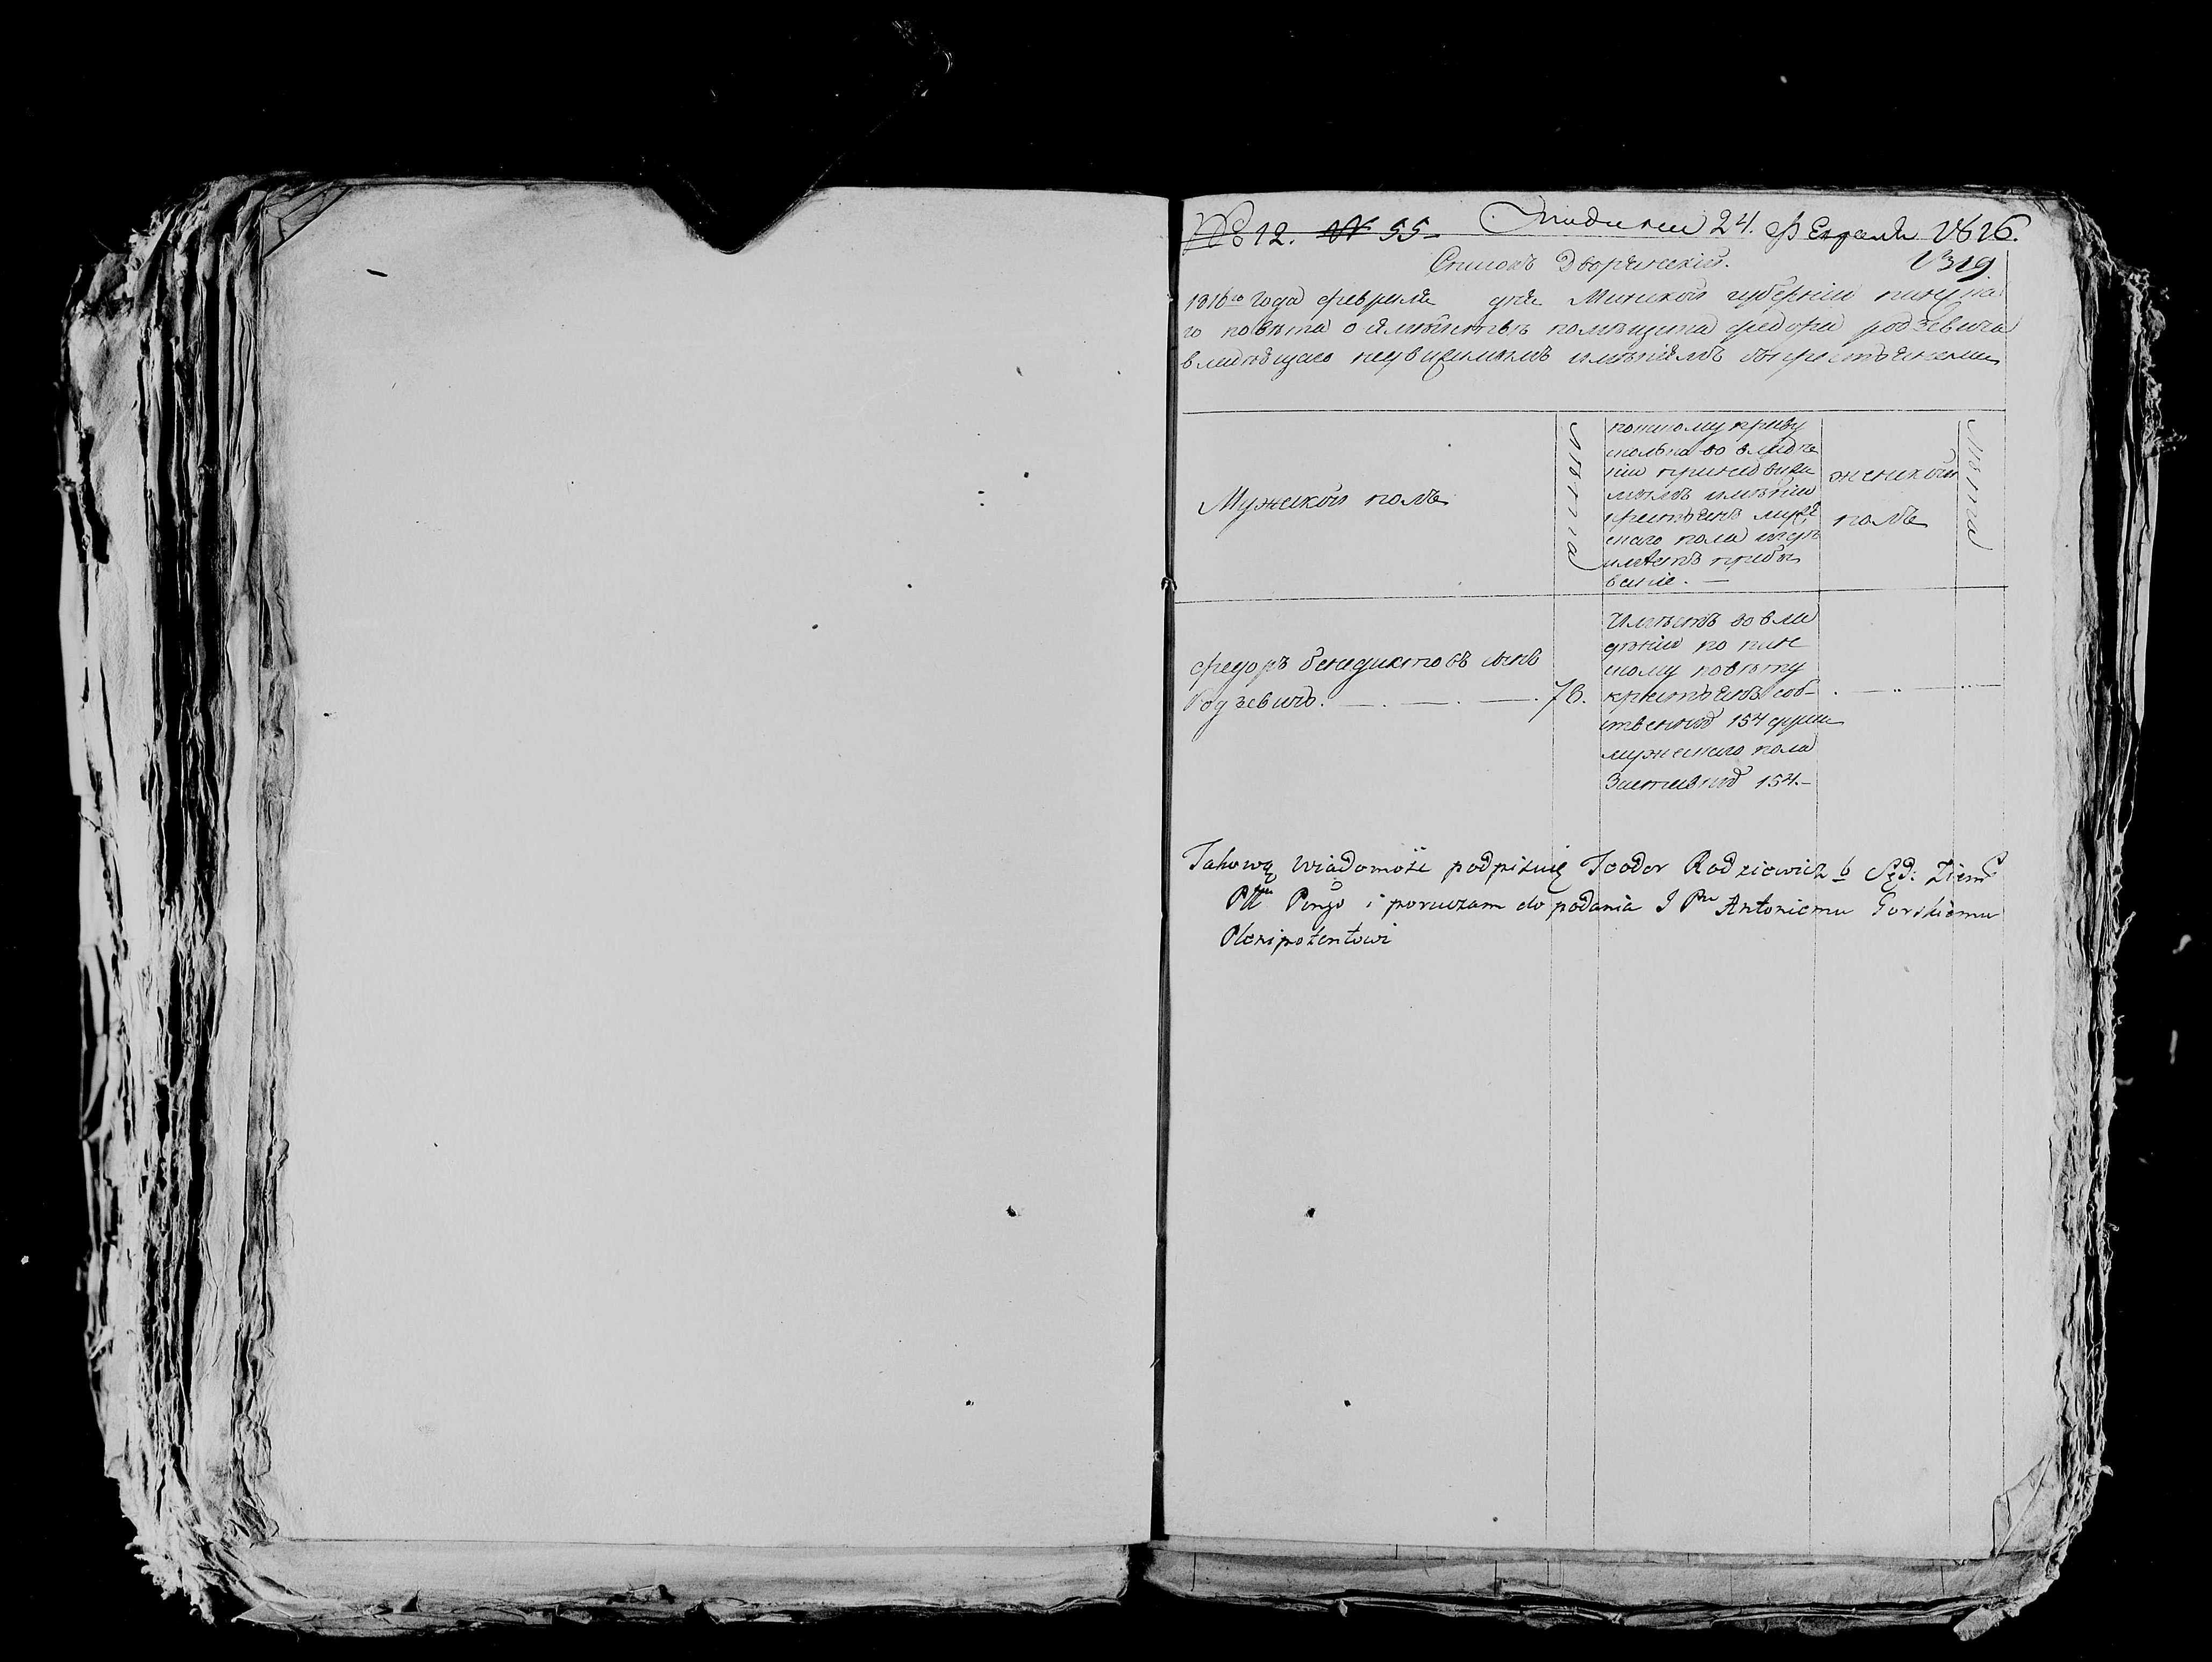 № 12. № 55. Подан 24. Февраля 1816.
Списокъ Дворянскій. 1319
1816го года февраля дня Минской губерніи пинска
го повѣта о помѣщика федора родзевича
владѣющаго недвижимымъ имѣніемъ съ крестьянами
Мужской полъ
лѣта
во владѣ
ніи
имѣніи
крестьянъ муже
скаго пола и гдѣ
имѣетъ пребы
ваніе. —
женской
полъ
лѣта
федоръ бенедиктовъ сынъ
Родзевичъ. — . — . — . 78.
Имѣетъ во вла
дѣніи по пин
скому повѣту
крестьянъ соб-
ственныхъ 154 души
мужескаго пола
154.-
Takową wiadomość podpisuię Teodor Rodziewicz b Sęd: Ziem
Pttu Pingo i poruczam do podania J Pnu Antoniemu Gorskiemu
Plenipotentowi